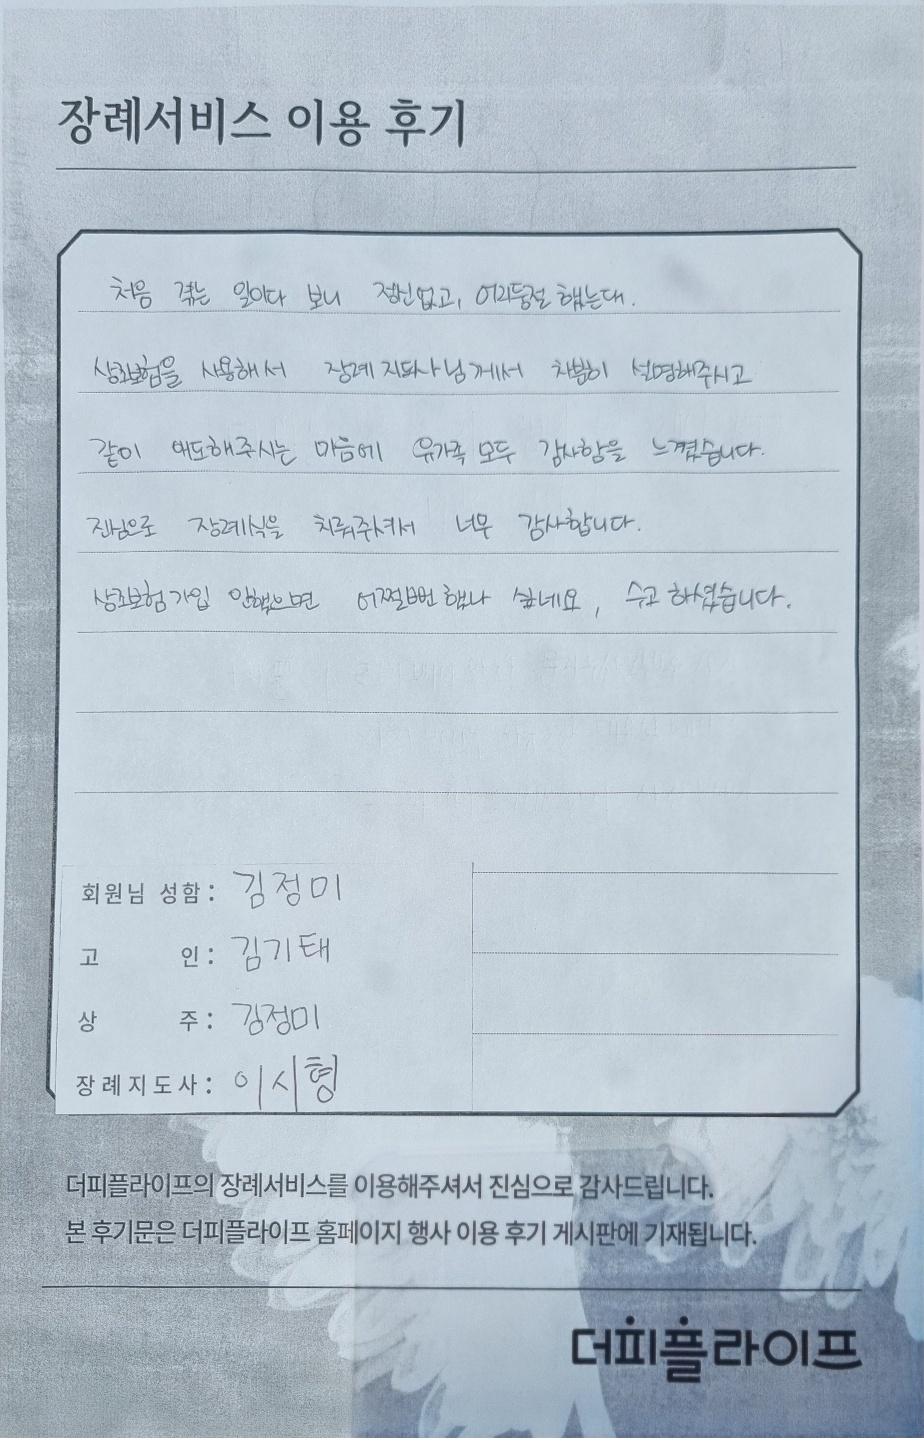 장례서비스 이용 후기
처음 겪는 일이다 보니 정신없고, 어리둥절 했는대.
상조보험을 사용해서 장례지도사님께서 차분히 설명해주시고
같이 애도해주시는 마음에 유가족 모두 감사함을 느꼈습니다.
진심으로 장례식을 치뤄주셔서 너무 감사합니다.
상조보험가입 안했으면 어쩔뻔 했나 싶네요, 수고 하셨습니다.
회원님 성함: 김정미
고 인: 김기태
상 주: 김정미
장례지도사: 이시형
더피플라이프의 장례서비스를 이용해주셔서 진심으로 감사드립니다.
본 후기문은 더피플라이프 홈페이지 행사 이용 후기 게시판에 기재됩니다.
더피플라이프